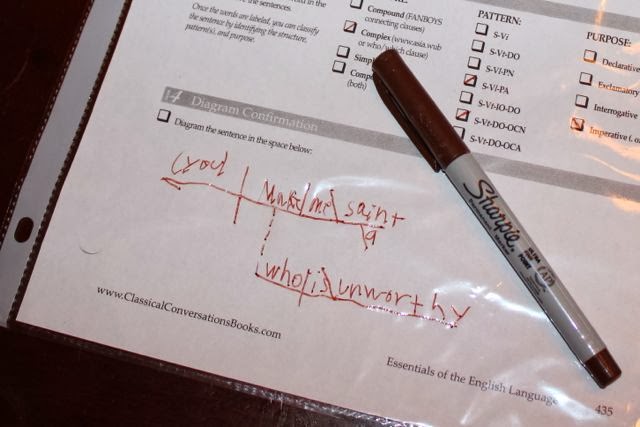 Once the words are labeled, you can classify
the sentence by identifying the structure,
pattern(s), and purpose.
Compound (FANBOYS
connecting clauses)
Complex (www.asia.wub
or who/which clause)
(both)
PATTERN:
S-Vi
S-Vt-DO
S-Vl-PN
S-Vl-PA
S-Vt-IO-DO
S-Vt-DO-OCN
S-Vt-DO-OCA
PURPOSE:
Declarative
Exclamatory
Interrogative
Imperative
14 Diagram Confirmation
Diagram the sentence in the space below:
(you)
Make me saint
a
who is unworthy
Sharpie
www.ClassicalConversationsBooks.com
Essentials of the English Language
435